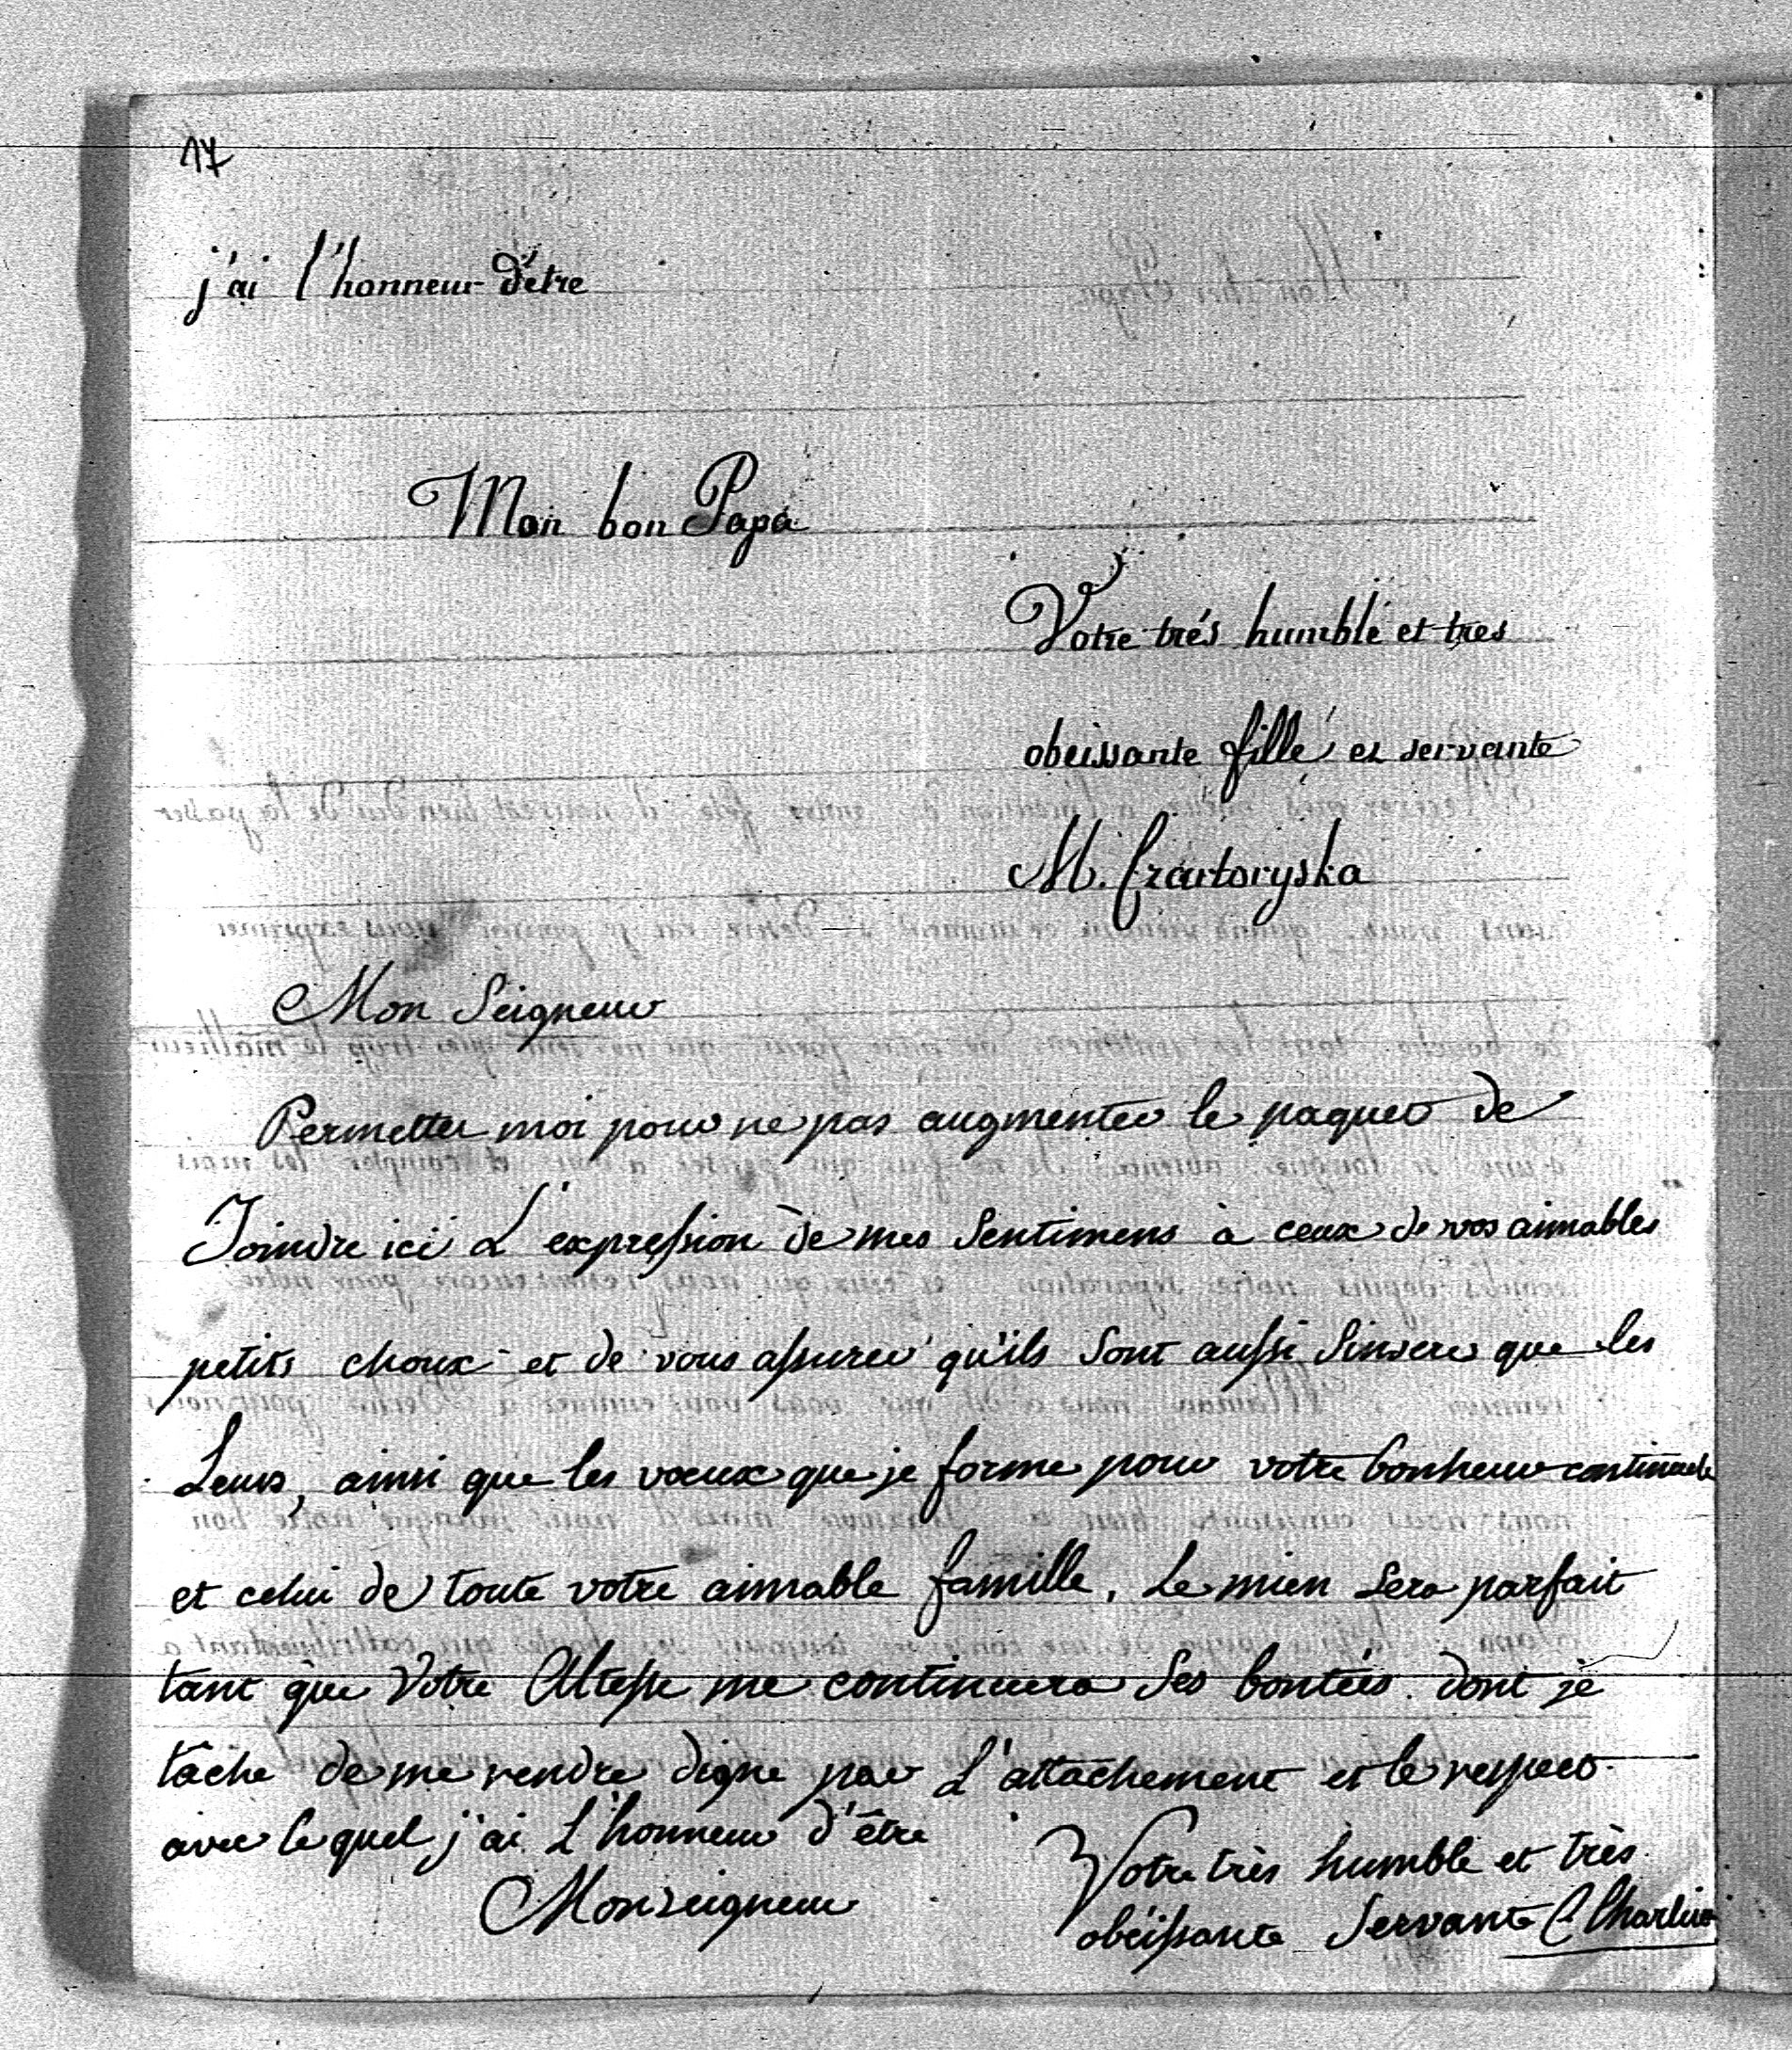 17
j'ai l'honneur d'étre
Mon bon Papa
Votre trés humble et tres
obeissante fille et servante
M. Czartoryska
Mon Seigneur
Permetter moi pour ne pas augmenter le paquet de
Joindre ici L'expression de mes Sentimens à ceux de vos aimables
petits choux et de vous assurer qu'ils Sont aussi Sincere que les
Leurs, ainsi que les vœux que je forme pour votre bonheur
et celui de toute votre aimable famille. Le mien Sera parfait
tant que Votre Altesse me continuera Ses bontées dont je
tâche de me rendre digne par L'attachement et le respect
avec lequel j'ai L'honneur d'être
Monseigneur
Votre très humble et très
obéissante Servante